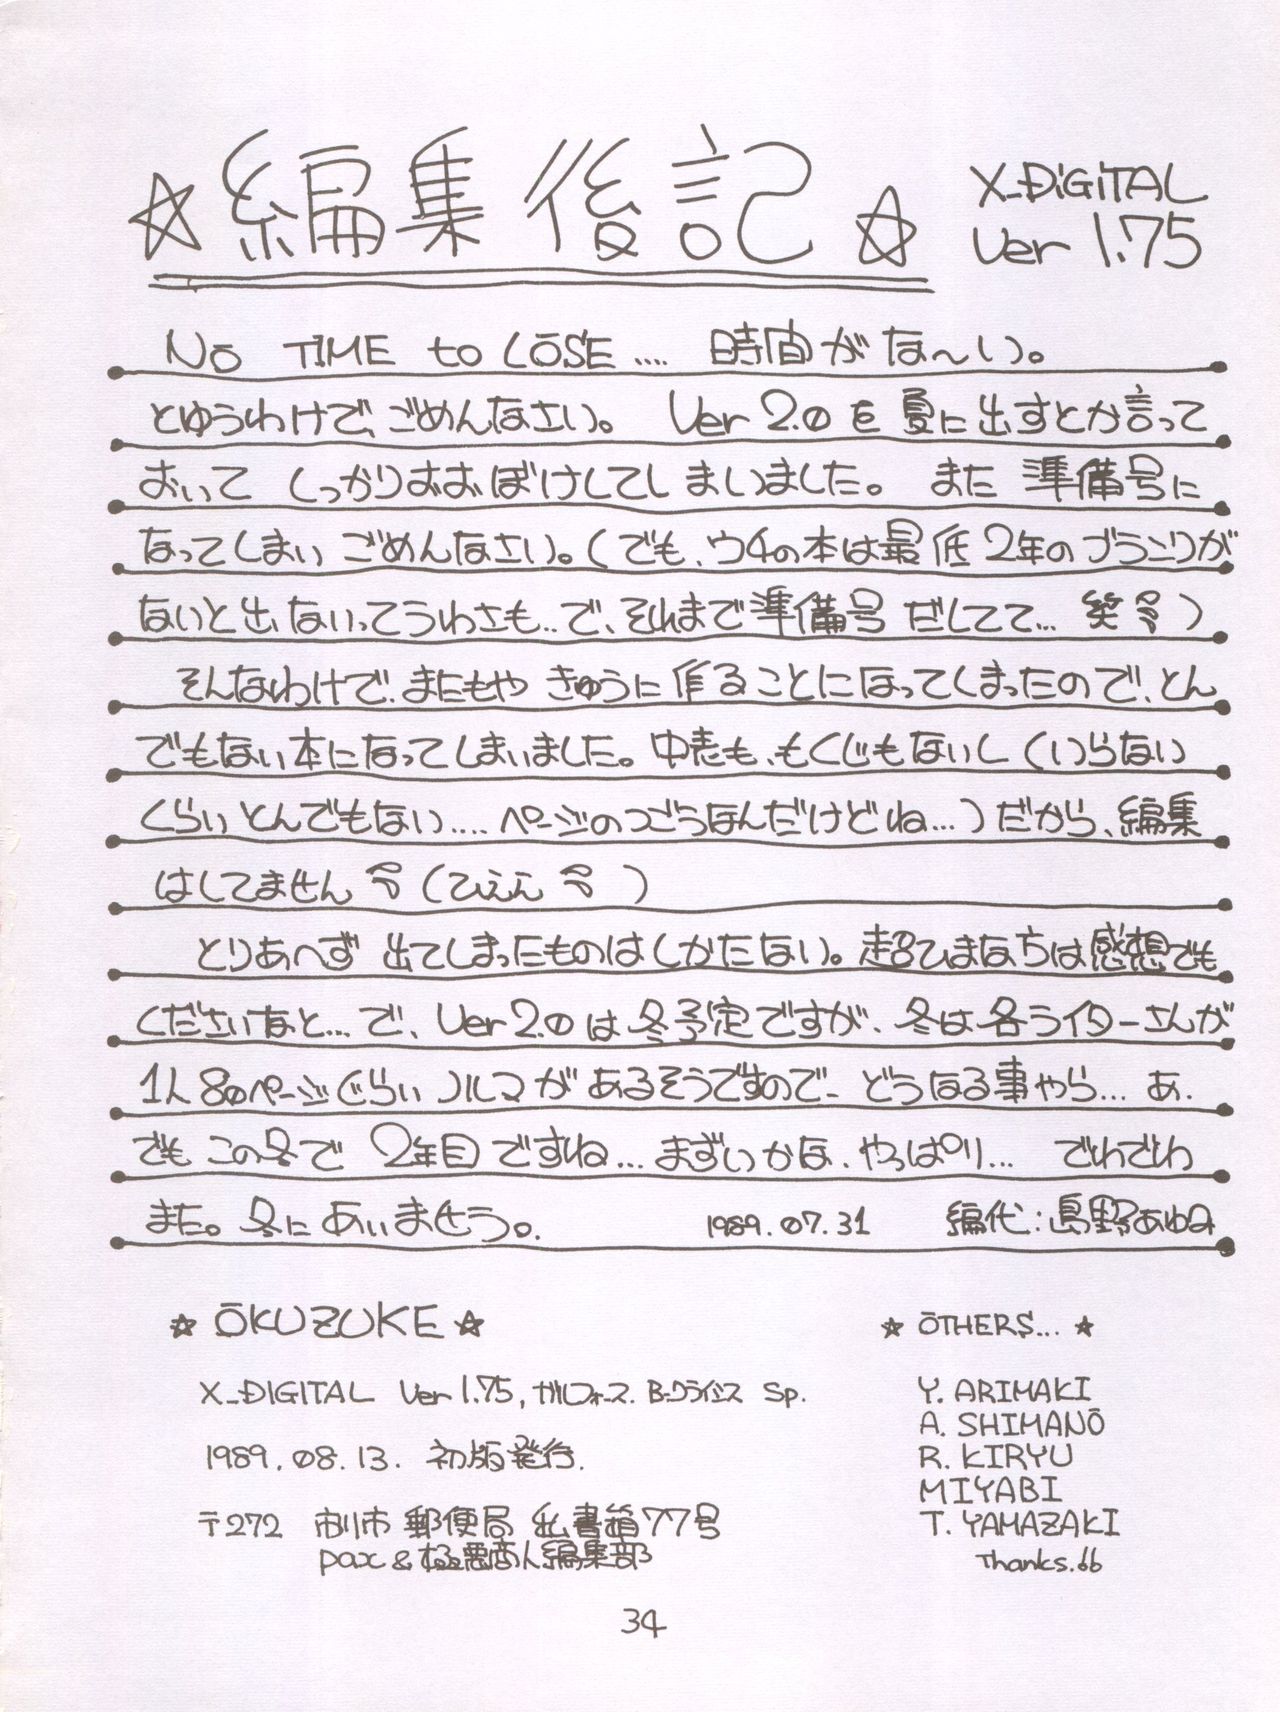 ☆編集後記☆
X_DiGiTAL
Ver 1.75
NO TIME to LOSE.... 時間がな〜い。
とゆうわけで、ごめんなさい。 Ver 2.0を夏に出すとか言って
おいて しっかりおおぼけしてしまいました。 また 準備号に
なってしまい ごめんなさい。(でも、ウチの本は最低2年のブランクが
ないと出ないってうわさも..で、それまで準備号だしてて... 笑)
そんなわけで、またもや きゅうに作ることになってしまったので、とん
でもない本になってしまいました。中表も、もくじもないし(いらない
くらいとんでもない.... ページのつごうなんだけどね...)だから、編集
はしてません(ひえん)
とりあへず 出てしまったものはしかたない。超ひまなちは感想でも
くださいなと... で、Ver2.0は冬予定ですが、冬は各ライターさんが
1人80ページぐらいノルマがあるそうですので、どうなる事やら... あ.
でも この冬で 2年目ですね... まずいかな、やっぱり... でわでわ
また。冬にあいませう。 1989.07.31 編代:島野あゆみ
☆ OKUZUKE ☆
X_DIGITAL Ver 1.75, ガルフォース. B-クライシス Sp.
1989.08.13. 初版発行.
〒272 市川市 郵便局 私書箱77号
pax & 極悪商人編集部
☆ OTHERS... ☆
Y. ARIMAKI
A. SHIMANO
R. KIRYU
MIYABI
T. YAMAZAKI
Thanks.66
34